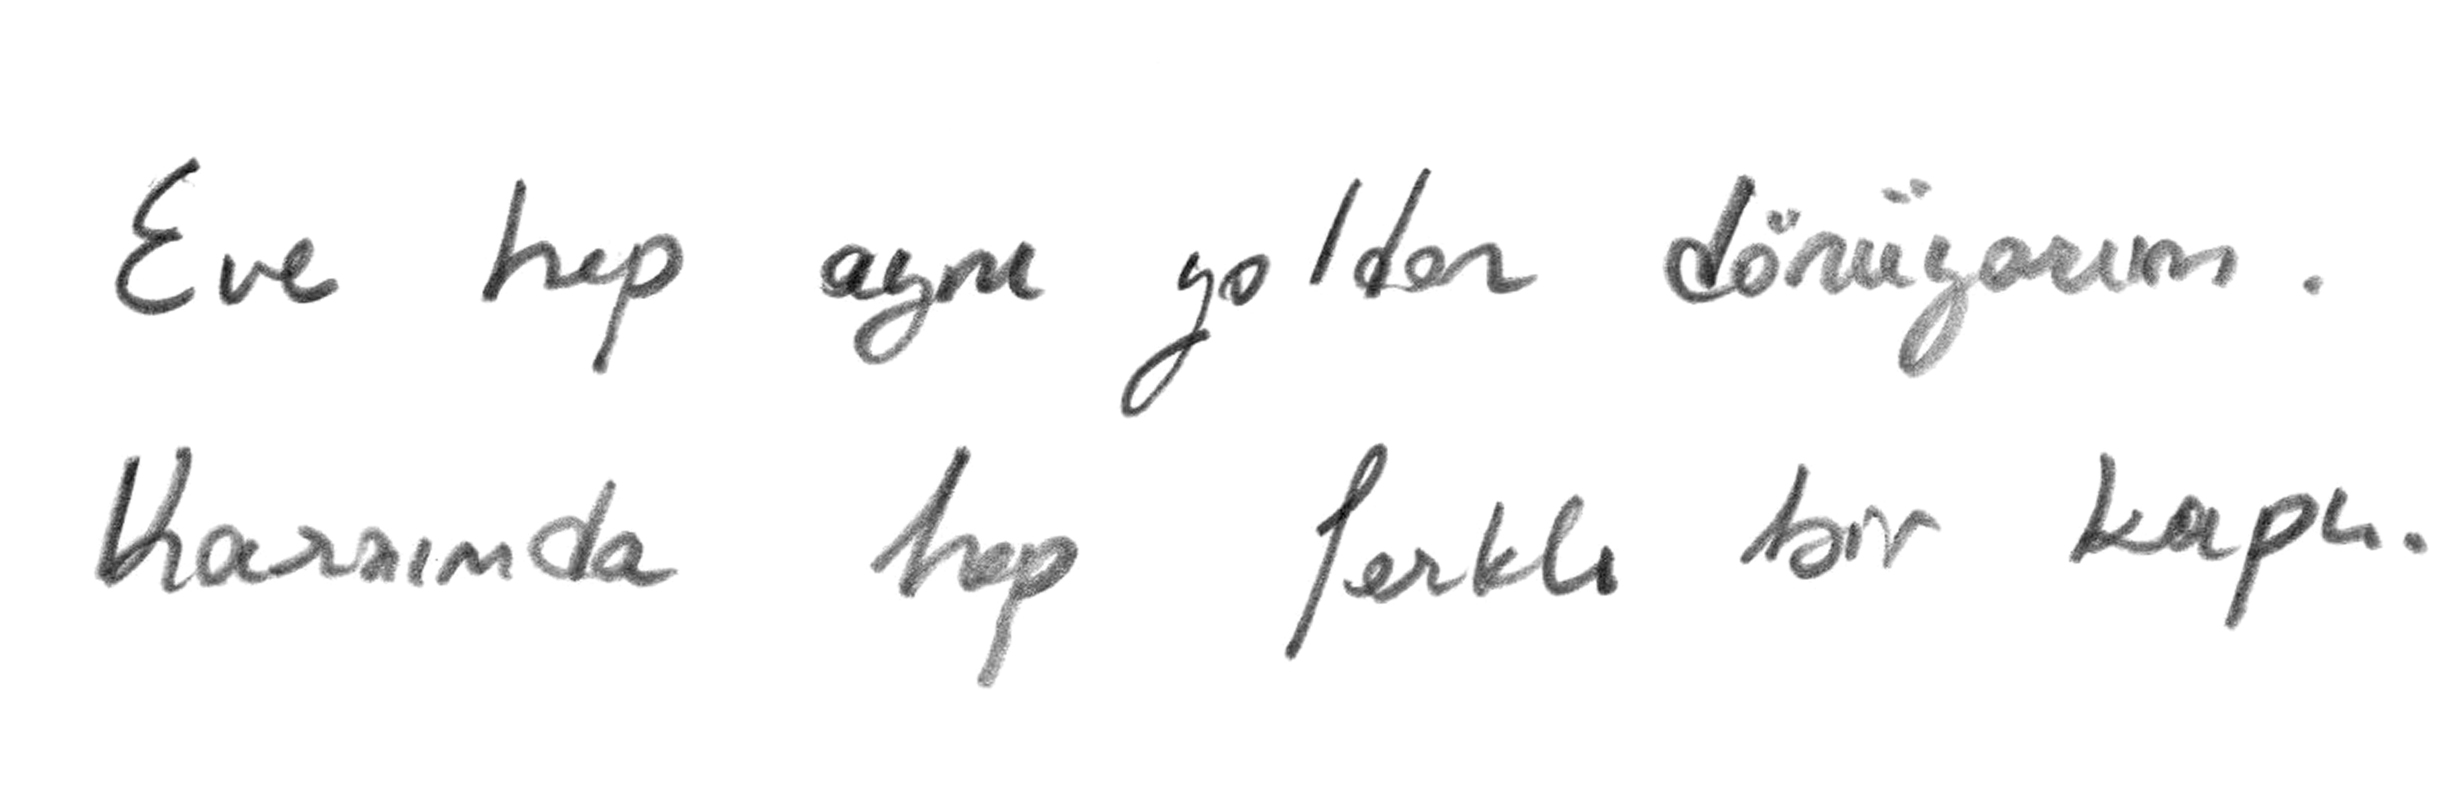 Eve hep aynı yoldan dönüyorum.
Karşımda hep farklı bir kapı.